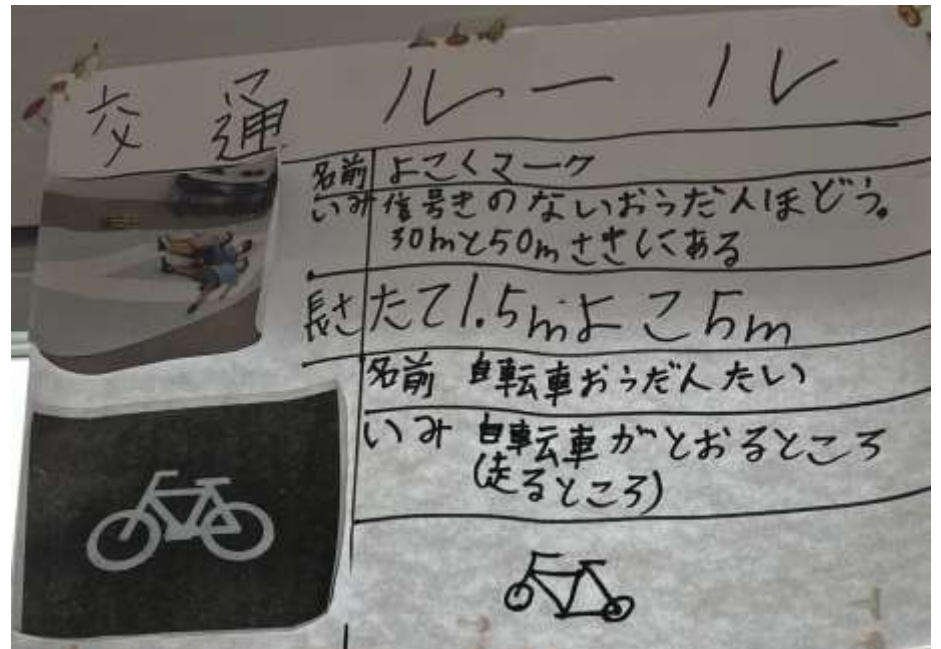 交通ルール
名前 よこくマーク
いみ 信号きのないおうだんほどう。
30mと50mさきにある
長さ たて1.5mよこ5m
名前 自転車おうだんたい
いみ 自転車がとおるところ
(走るところ)